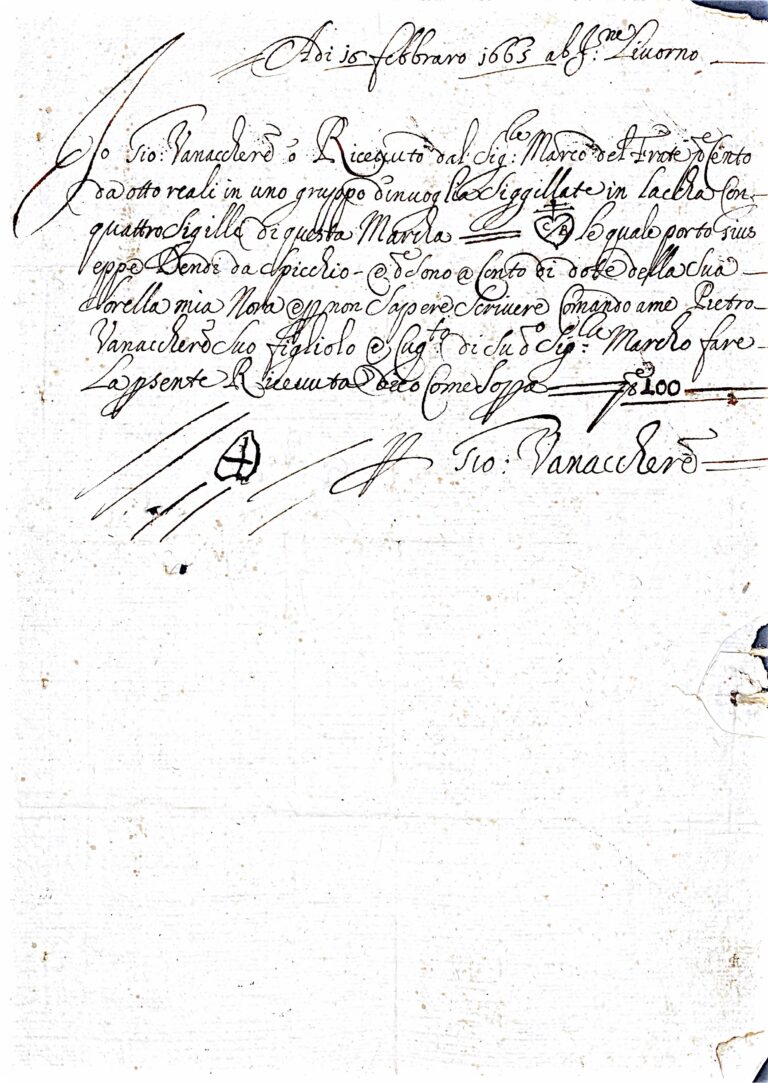 Adi 16 febbraro 1663 ab J.ne Livorno
Io Gio: Vanacchere o Riceuuto dal Sig:lle Marco del Frate p.e Cento
da otto reali in uno gruppo d'inuoglia Siggillate in Laccha Con
quattro Sigille di questa Marcha C B le quale porto Gius
eppe Dendi da Spicchio - e d.e Sono a Conto di dote della Sua
Sorella mia Nora e p non Sapere Scriuere Comando ame Pietro
Vanacchere Suo figliolo e Cug.to di Su d.o Sig:lle Marcho fare
La psente Riceuuta dico Come Soppa p.e 8 100
Gio: Vanacchere